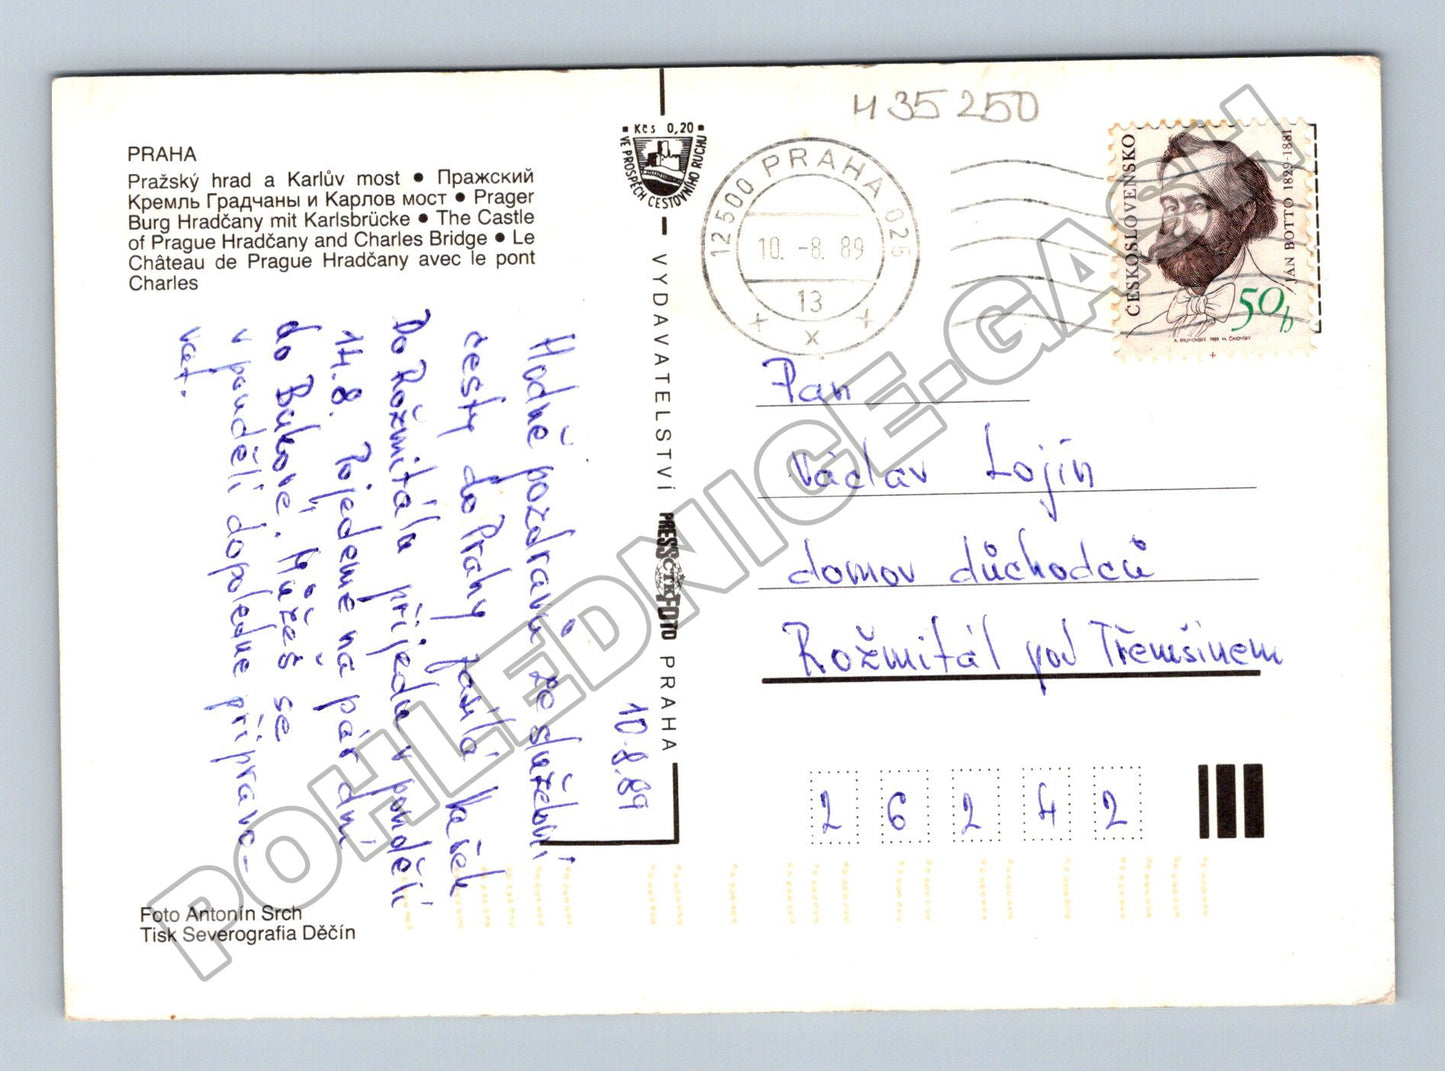 PRAHA
Pražský hrad a Karlův most • Пражский
Кремль Градчаны и Карлов мост • Prager
Burg Hradčany mit Karlsbrücke • The Castle
of Prague Hradčany and Charles Bridge • Le
Château de Prague Hradčany avec le pont
Charles
10.8.89
Hodně pozdravů ze služební
cesty do Prahy zasílá Vašek
Do Rožmitálu přijedu v pondělí
14.8. Pojedeme na pár dní
do Bukové. Můžeš se
v pondělí dopoledne připravo-
vat.
Foto Antonín Srch
Tisk Severografia Děčín
Kčs 0,20
VE PROSPĚCH CESTOVNÍHO RUCHU
VYDAVATELSTVÍ PRESSFOTO PRAHA
ČTK
435250
12500 PRAHA 025
10. -8. 89
13
+ x +
ČESKOSLOVENSKO
JÁN BOTTO 1829-1881
50h
Pan
Václav Lojín
domov důchodců
Rožmitál pod Třemšínem
26242
POHLEDNICE-GASH